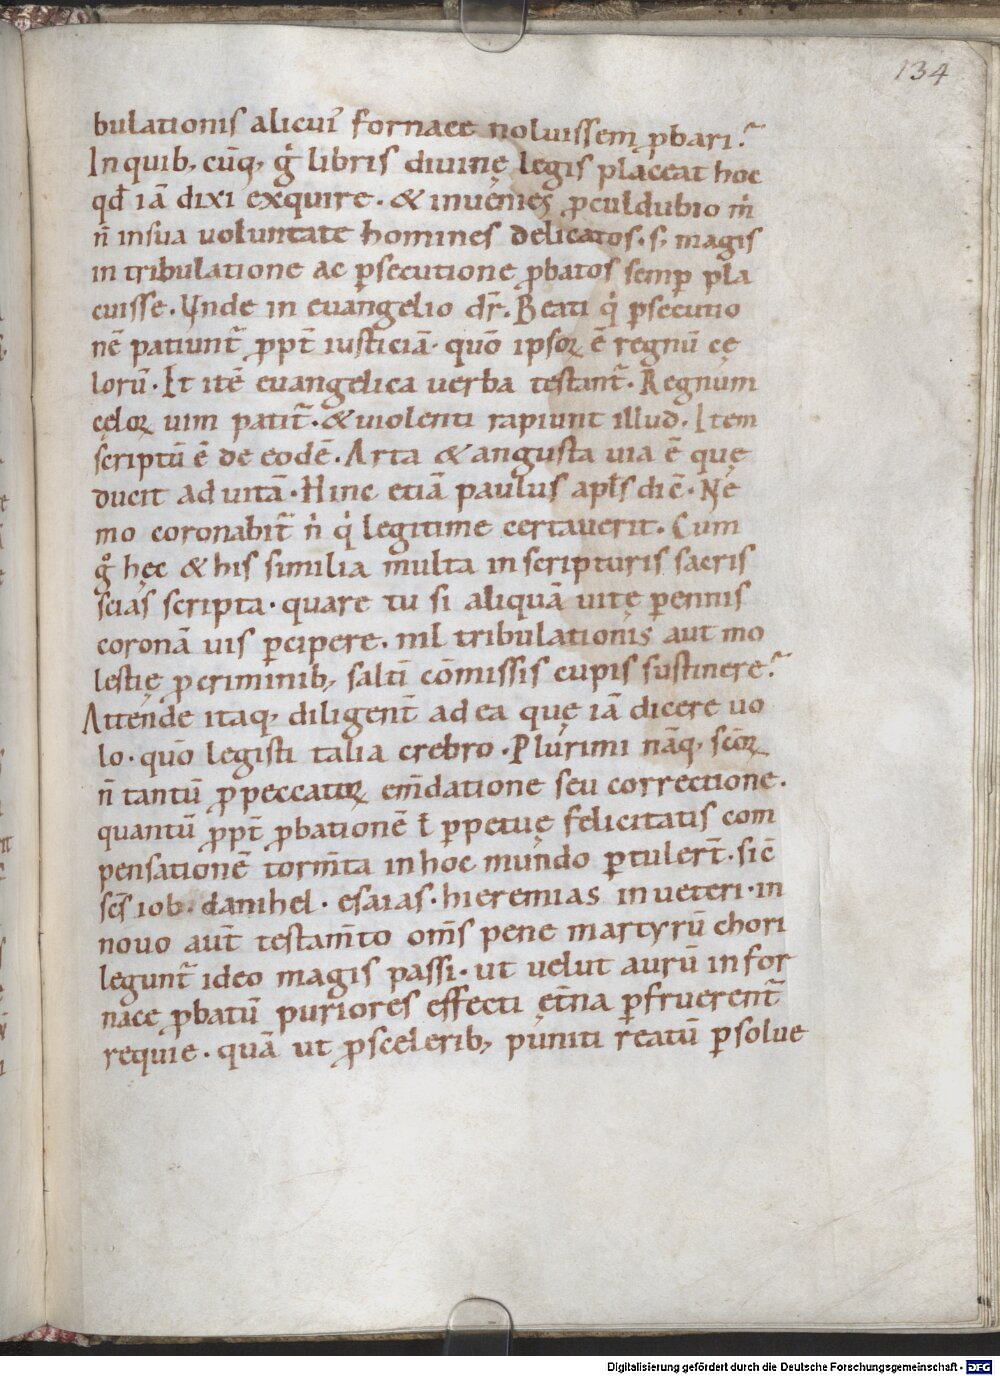 134
bulationis alicui᷎ fornace noluissem ꝓbari?
In quib; cūq; g̊ libris diuinę legis placeat hoc
qd̄ iā dixi exquire. & inuenies ꝓculdubio m̄
n̄ in sua uoluntate homines delicatos. s; magis
in tribulatione ac ꝑsecutione ꝓbatos semꝑ pla
cuisse. Vnde in euangelio dr̄. Beati q̇ ꝑsecutio
nē patiunt̄ ꝓpt̄ iusticiā. quō ipsoꝝ ē regnū cę
lorū. Et itē euangelica uerba testant̄. Regnum
cęloꝝ uim patit̄. & uiolenti rapiunt illud. Item
scriptū ē de eodē. Arta & angusta uia ē quę
ducit ad uitā. Hinc etiā paulus apl̄s dic̄. Ne
mo coronabit̄ n̊ q̇ legitime certauerit. Cum
g̊ hęc & his similia multa in scripturis sacris
scias scripta. quare tu si aliquā uitę ꝑennis
coronā uis ꝑcipere. nil tribulationis aut mo
lestię ꝓ criminib; saltī cōmissis cupis sustinere?
Attende itaq; diligent̄ ad ea quę iā dicere uo
lo. quō legisti talia crebro. Plurimi nāq; sc̄oꝝ
n̄ tantū ꝓ peccatoꝝ em̄datione seu correctione.
quantū ꝓpt̄ ꝓbationē ł ꝑpetuę felicitatis com
pensationē torm̄ta in hoc mundo ꝑtulert̄. sic̄
sc̄s iob. danihel. esaias. hieremias in ueteri. in
nouo aut̄ testam̄to om̄s pene martyrū chori
legunt̄ ideo magis passi. ut uelut aurū in for
nace ꝓbatū puriores effecti et̄na ꝑfruerent̄
requie. quā ut ꝓ scelerib; puniti reatū ꝑsolue
Digitalisierung gefördert durch die Deutsche Forschungsgemeinschaft - DFG